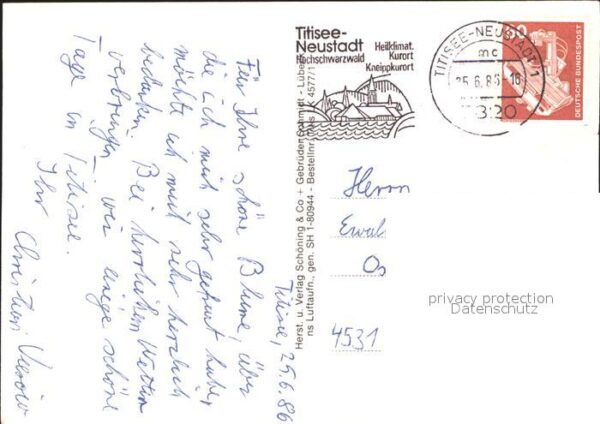 Titisee, 25.6.86
Für Ihre schöne Blume, über
die ich mich sehr gefreut habe,
möchte ich mich sehr herzlich
bedanken. Bei herrlichem Wetter
verbringen wir einige schöne
Tage in Titisee.
Ihr
Titisee-
Neustadt
Hochschwarzwald
Heilklimat.
Kurort
Kneippkurort
TITISEE-NEUSTADT/1
mc
25.6.86-16
7820
60
DEUTSCHE BUNDESPOST
Herst. u. Verlag Schöning & Co + Gebrüder Schmidt - Lübe
ns Luftaufn., gen. SH 1-80944 - Bestellnr. K 4577/1
Herrn
Ewal
Os
4531
privacy protection
Datenschutz